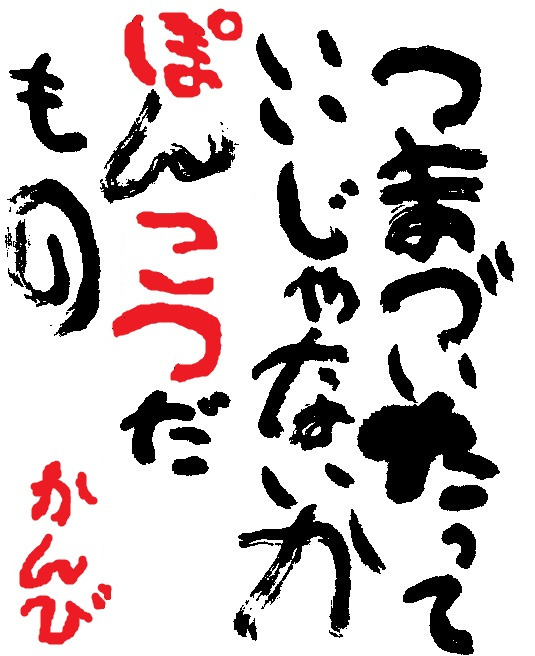 つまづいたって
いいじゃないか
ぽんこつだ
もの
かんび